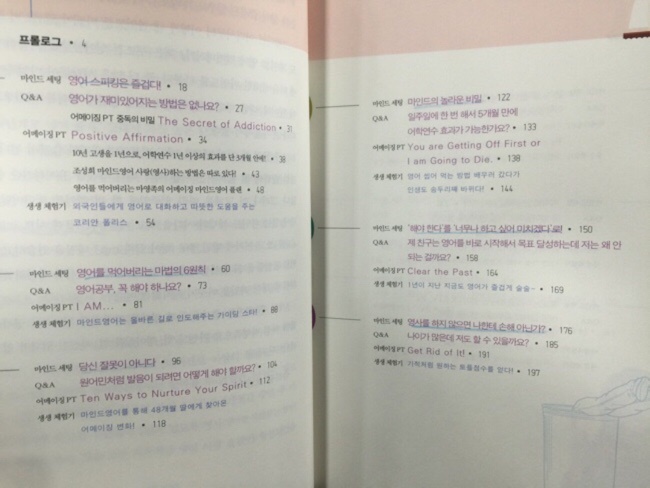 프롤로그 • 4
마인드 세팅 영어 스피킹은 즐겁다! • 18
Q&A 영어가 재미있어지는 방법은 없나요? • 27
어메이징 PT 중독의 비밀 The Secret of Addiction • 31
어메이징 PT Positive Affirmation • 34
10년 고생을 1년으로, 어학연수 1년 이상의 효과를 단 3개월 만에! • 38
조성희 마인드영어 사랑(영사)하는 방법은 따로 있다! • 43
영어를 먹어버리는 마영족의 어메이징 마인드영어 플랜 • 48
생생 체험기 외국인들에게 영어로 대화하고 따뜻한 도움을 주는
코리안 폴리스 • 54
마인드 세팅 영어를 먹어버리는 마법의 6원칙 • 60
Q&A 영어공부, 꼭 해야 하나요? • 73
어메이징 PT I AM... • 81
생생 체험기 마인드영어는 올바른 길로 인도해주는 가이딩 스타! • 88
마인드 세팅 당신 잘못이 아니다 • 96
Q&A 원어민처럼 발음이 되려면 어떻게 해야 할까요? • 104
어메이징 PT Ten Ways to Nurture Your Spirit • 112
생생 체험기 마인드영어를 통해 48개월 딸에게 찾아온
어메이징 변화! • 118
마인드 세팅 마인드의 놀라운 비밀 • 122
Q&A 일주일에 한 번 해서 5개월 만에
어학연수 효과가 가능한가요? • 133
어메이징 PT You are Getting Off First or
I am Going to Die. • 138
생생 체험기 영어 씹어 먹는 방법 배우러 갔다가
인생도 송두리째 바뀌다! • 144
마인드 세팅 '해야 한다'를 '너무나 하고 싶어 미치겠다'로! • 150
Q&A 제 친구는 영어를 바로 시작해서 목표 달성하는데 저는 왜 안
되는 걸까요? • 158
어메이징 PT Clear the Past • 164
생생 체험기 1년이 지난 지금도 영어가 즐겁게 술술~ • 169
마인드 세팅 영사를 하지 않으면 나한테 손해 아닌가? • 176
Q&A 나이가 많은데 저도 할 수 있을까요? • 185
어메이징 PT Get Rid of It! • 191
생생 체험기 기적처럼 원하는 토플점수를 얻다! • 197